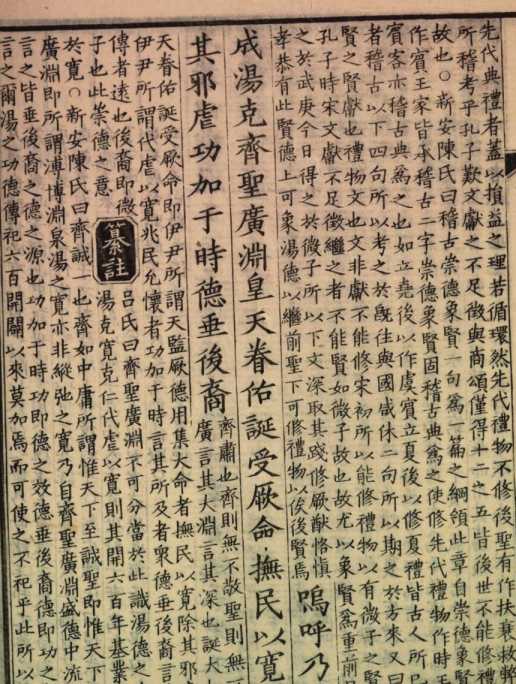 先代典禮者蓋以損益之理若循環然先代禮物不修後聖有作扶衰救弊
所稽考乎孔子歎文獻之不足徵與商頌僅得十二之五皆後世不能修禮
故也○新安陳氏曰稽古崇德象賢一句爲一篇之綱領此章自崇德象賢
作賓王家皆承稽古二字崇德象賢固稽古典爲之使修先代禮物作時王
賓客亦稽古典爲之也如立堯後以作虞賓立夏後以修夏禮皆古人所已
者稽古以下四句所以考之於旣往與國咸休二句所以期之於方來又曰
賢之賢獻也禮物文也文非獻不能修宋初所以能修禮物以有微子之賢
孔子時宋文獻不足徵繼之者不能賢如微子故也故尤以象賢爲重前
之於武庚今日得之於微子所以下文深取其踐修厥猷恪愼
孝恭有此賢德上可象湯德以繼前聖下可修禮物以俟後賢焉
嗚呼乃
成湯克齊聖廣淵皇天眷佑誕受厥命撫民以寬
其邪虐功加于時德垂後裔
齊肅也齊則無不敬聖則無
廣言其大淵言其深也誕大
天眷佑誕受厥命即伊尹所謂天監厥德用集大命者撫民以寬除其邪
伊尹所謂代虐以寬兆民允懷者功加于時言其所及者衆德垂後裔言
傳者遠也後裔即微
子也此崇德之意
纂註
呂氏曰齊聖廣淵不可分當於此識湯德之
湯克寬克仁代虐以寬則其開六百年基業
於寬○新安陳氏曰齊誠一也齊如中庸所謂惟天下至誠聖即惟天下
廣淵即所謂溥博淵泉湯之寬亦非縱弛之寬乃自齊聖廣淵盛德中流
言之皆垂後裔之德之源也功加于時功即德之效德垂後裔德即功之
言之爾湯之功德傳祀六百開闢以來莫加焉而可使之不祀乎此所以